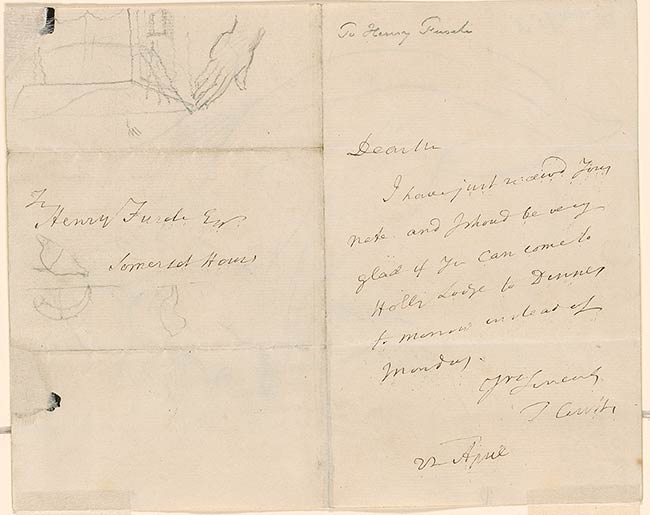 To Henry Fuseli Esqr.
Somerset House
To Henry Fuseli
Dear Sir
I have just received Your
note and I shoud be very
glad if You Can come to
Holly Lodge to Dinner
to morrow instead of
Monday.
Yrs Sincerely
22 April